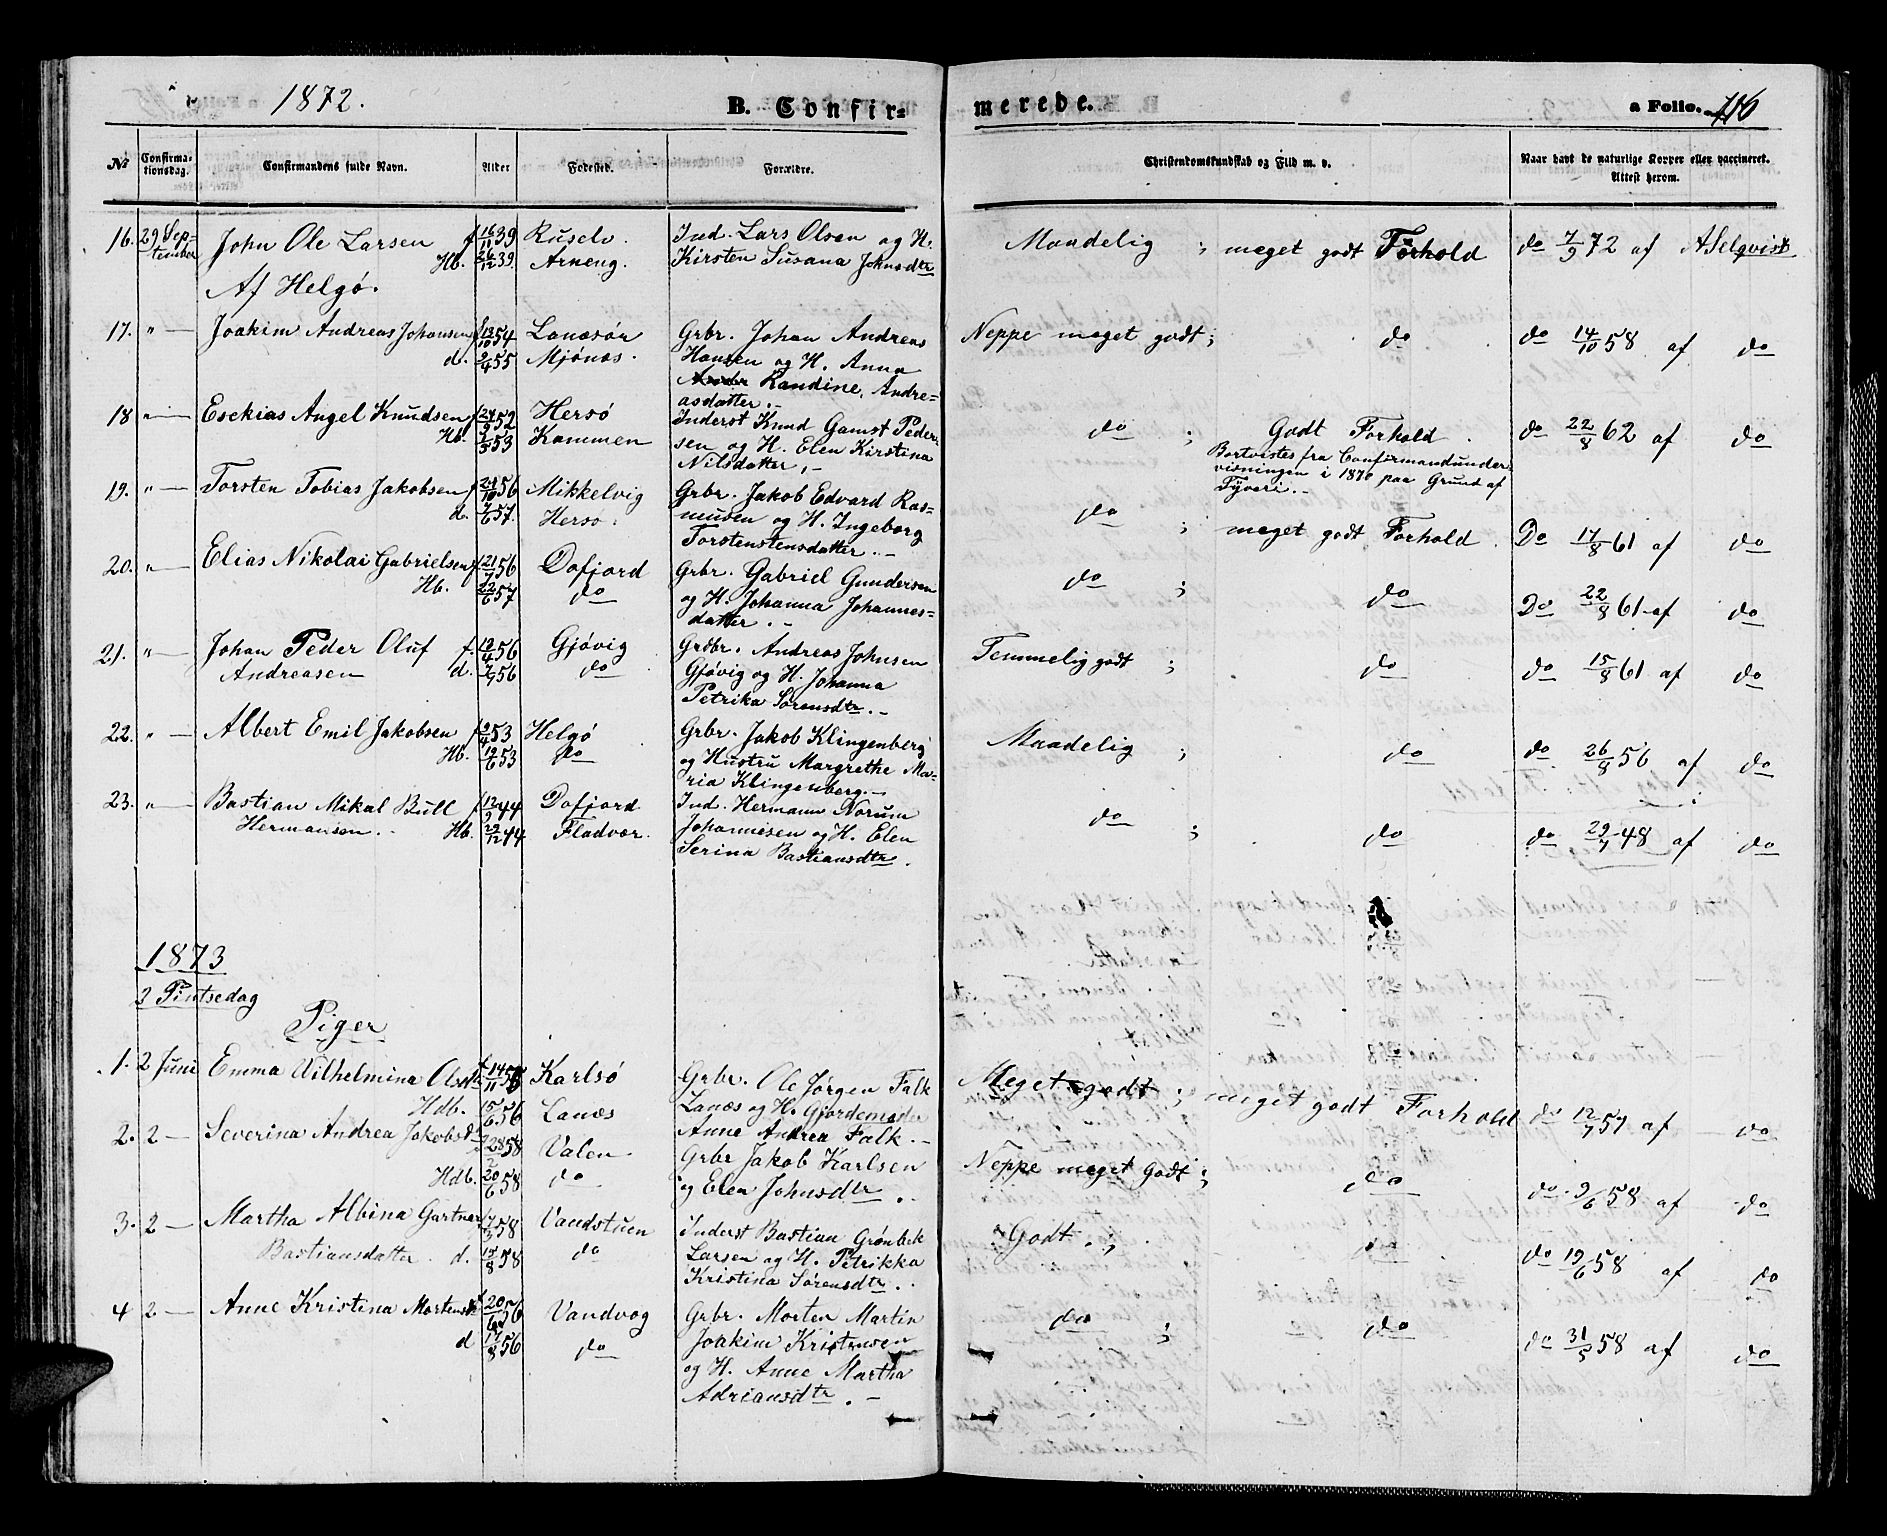 1872. B. Confirmerede. a Folio. 116
No Confirmationsdag. Confirmandens fulde Navn. Alder Fodested. Forældre. Christendomskundskab og Flid m. v. Naar havt de naturlige Kopper eller vaccineret. Attest herom.
16. 29 September John Ole Larsen f 16/11 39 Ruselv. Ind. Lars Olsen og H. Maadelig ; meget godt Forhold do 7/9 72 af A Selqvist
Hb. 26/12 39. Arneng. Kirsten Susana Johnsdtr
Af Helgö.
17. " — Joakim Andreas Johansen f 13/10 54 Lanæsör Grbr. Johan Andreas Neppe meget godt ; do do 14/10 58 af do
d. 9/4 55 Mjönæs. Hansen og H. Anna
Randine, Andre=
asdatter. -
18 " — Esekias Angel Knudsen f 24/9 52 Hersö Inderst Knud Gamst Peder do ; Godt Forhold. do 22/8 62 af do
Hb. 1/5 53 Kammen sen og H. Elen Kirstina Bortvistes fra Confirmandunder=
Nilsdatter. - visningen i 1870 paa Grund af
Tyveri. -
19. " — Torsten Tobias Jakobsen f 24/10 56 Mikkelvig Grbr. Jakob Edvard Ras= do ; meget godt Forhold. Do 17/8 61 af do
d. 7/6 57. Hersö. musen og H. Ingeborg
Torstenstensdatter. -
20. " — Elias Nikolai Gabrielsen f 21/7 56 Dofjord Grbr. Gabriel Gundersen do ; do Do 22/8 61 af do
Hb. 22/6 57 do og H. Johanna Johannes=
datter. -
21. " — Johan Peder Oluf f. 12/4 56 Gjövig Grdbr. Andreas Johnsen Temmelig godt ; do do 15/8 61 af do
Andreasen d. 7/7 56 do Gjövig og H. Johanna
Petrika Sörensdtr. -
22. " — Albert Emil Jakobsen f 9/4 53 Helgö Grbr. Jakob Klingenberg Maadelig ; do do 26/8 56 af do
Hb. 19/6 53 do og Hustru Margrethe Ma=
ria Klingenberg. -
23. " — Bastian Mikal Bull f 12/9 44 Dofjord Ind. Hermann Norum do ; do do 29/7 48 af do
Hermansen. Hb. 29/12 44 Fladvær. Johannesen og H. Elen
Serina Bastiansdtr.
1873
2 Pintsedag
Piger
1. 2 Juni Emma Vilhelmina f 14/11 55 Karlsö Grbr. Ole Jörgen Falk Meget godt ; meget godt Forhold do 12/7 57 af do
Hdb. 15/6 56 Lanæs Lanæs og H. Gjordemoder
Anne Andrea Falk. -
2. 2 — Severina Andrea Jakobsdtr 58 Valen Grbr Jakob Karlsen Neppe meget Godt ; do do 9/6 58 af do
Hdb. 20/6 58 do og Elen Johnsdtr.
3. 2 — Martha Albina Gartner 7/3 58 Vandstuen Inderst Bastian Grönbek Godt ; do do 19/6 58 af do
Bastiansdatter. d. 14/8 58 do Larsen og H. Petrikka
Kristina Sörensdtr.
4 2 — Anne Kristina Mortensdtr 20/6 56 Vandvog Grbr. Morten Martin do ; do do 31/5 58 af do
d 17/8 56 do Joakim Kristensen
og H. Anne Martha
Adriansdtr. -